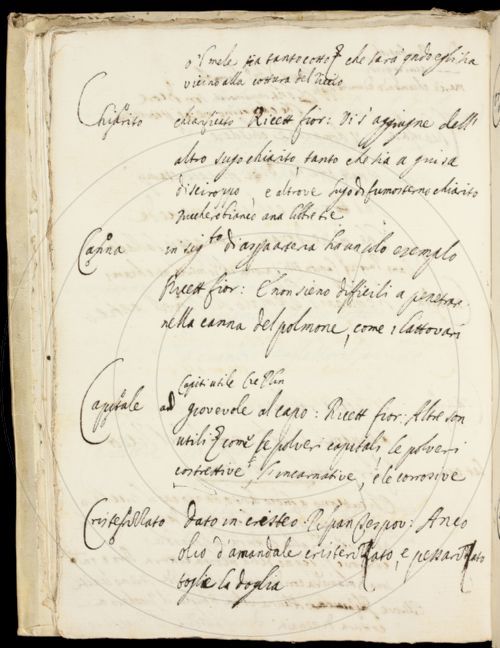 o'l mele sia tanto cotto che sarà quando egli sia
vicino alla cottura del
Chiarito chiarificato Ricett fior: Vi s'aggiugne dell'
altro sugo chiarito, tanto che sia a guisa
di sciroppo, e altrove sugo di fumosterno chiarito
zucchero bianco ana libre tre
Canna in sigto d'aspararteria ha un solo exemplo
Ricett fior: E non sieno difficili a penetrar
nella canna del polmone, come i lattovari
Capitale ad
giovevole al capo: Ricett fior: Altre son
utili come le polveri capitali, le polveri
costrettive, l'incarnative, e le corrosive
dato in cristeo: Anco
olio d'amandale e
toglie la doglia